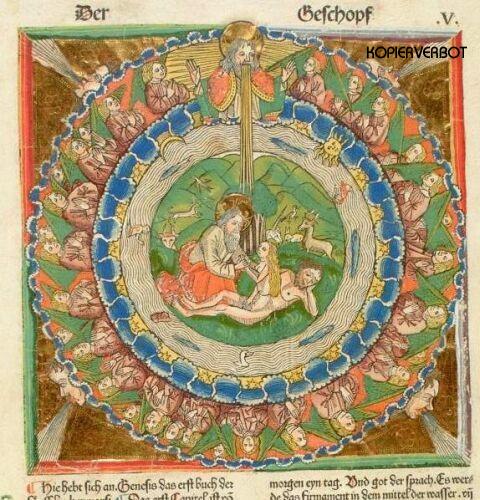 Der Geschopf .V.
KOPIERVERBOT
¶ Hie hebt sich an. Genesis das erst buch der
morgen eyn tag. Vnd got der sprach. Es wers
de das firmament in dem mittel der wasser. vñ